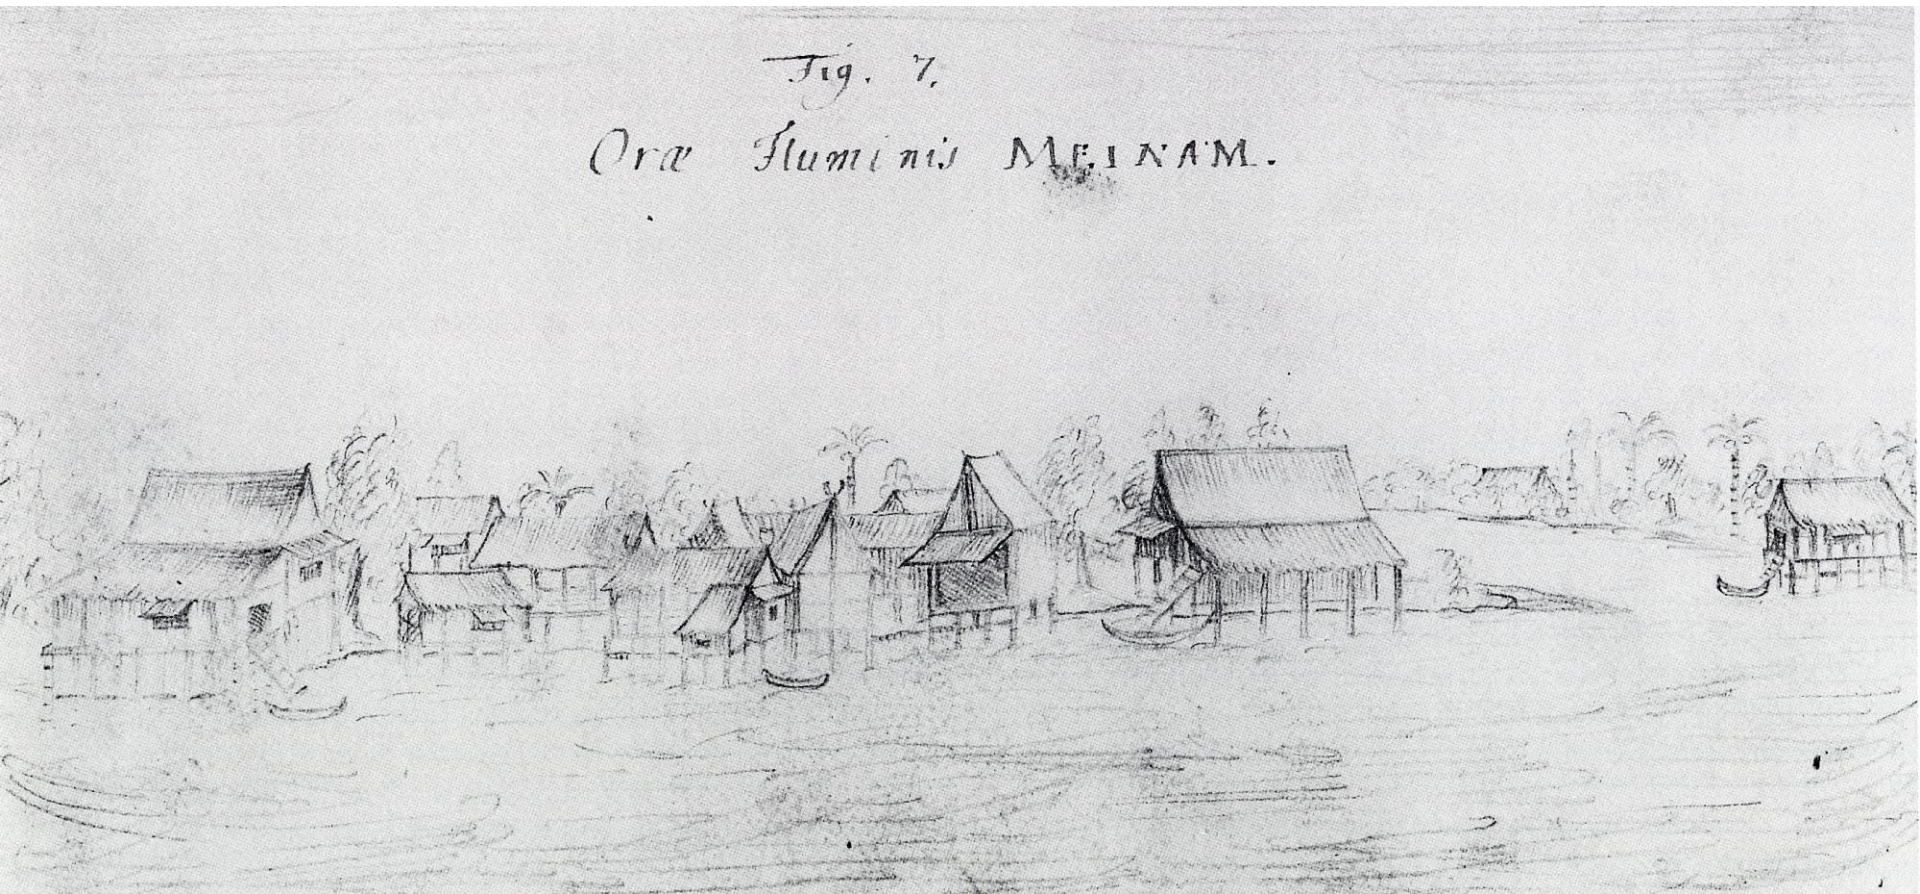 Fig. 7.
Oræ Fluminis MEINAM.